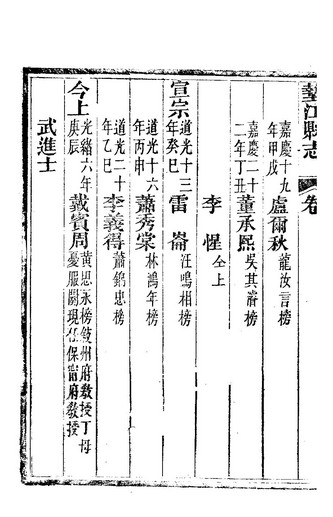 墊江縣志 卷
嘉慶十九年甲戌 盧爾秋 龍汝言榜
嘉慶二十二年丁丑 董承熙 吳其濬榜
李惺 仝上
宣宗 道光十三年癸巳 雷崙 汪鳴相榜
道光十六年丙申 蕭秀棠 林鴻年榜
道光二十年乙巳 李義得 蕭錦忠榜
今上 光緒六年庚辰 戴賓周 黃思永榜敘州府教授丁母憂服闋現任保甯府教授
武進士